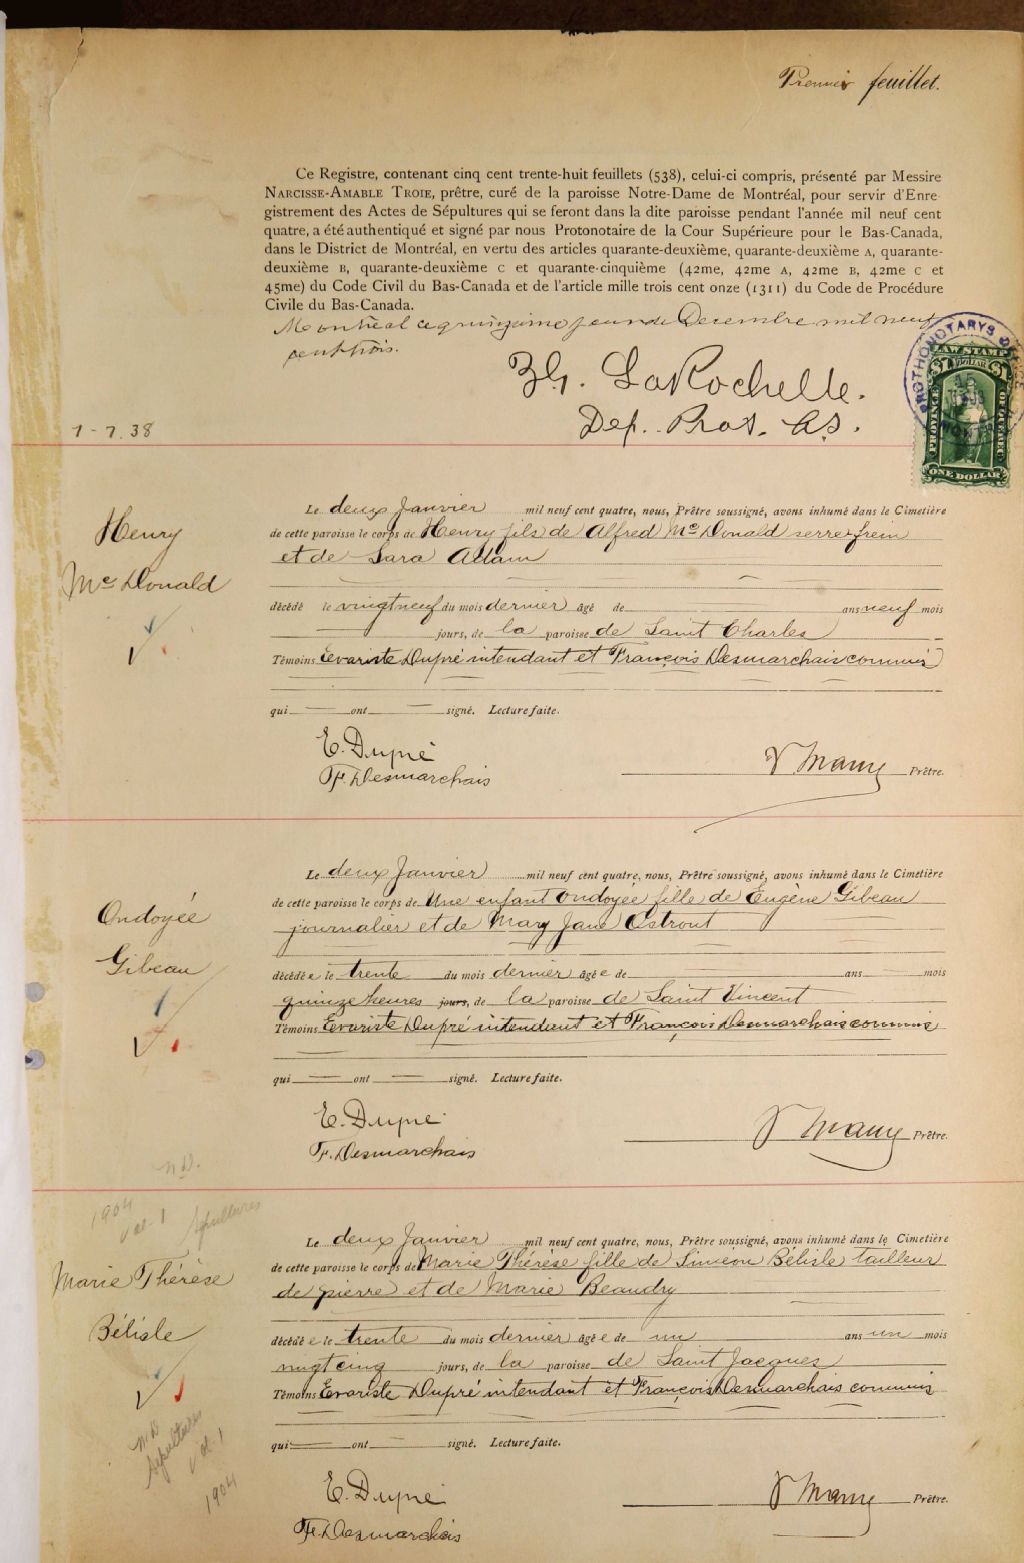 Premier feuillet.
Ce Registre, contenant cinq cent trente-huit feuillets (538), celui-ci compris, présenté par Messire
NARCISSE-AMABLE TROIE, prêtre, curé de la paroisse Notre-Dame de Montréal, pour servir d'Enre-
gistrement des Actes de Sépultures qui se feront dans la dite paroisse pendant l'année mil neuf cent
quatre, a été authentiqué et signé par nous Protonotaire de la Cour Supérieure pour le Bas-Canada,
dans le District de Montréal, en vertu des articles quarante-deuxième, quarante-deuxième A, quarante-
deuxième B, quarante-deuxième C et quarante-cinquième (42me, 42me A, 42me B, 42me C et
45me) du Code Civil du Bas-Canada et de l'article mille trois cent onze (1311) du Code de Procédure
Civile du Bas-Canada.
Montréal ce quinzième jour de Decembre mil neuf
cent trois.
LaRochelle.
Dep. Prot. C.S.
PROTHONOTARY'S
LAW STAMP
PROVINCE OF QUEBEC
ONE DOLLAR
1-7.38
Henry
Mc Donald
Le deux Janvier mil neuf cent quatre, nous, Prêtre soussigné, avons inhumé dans le Cimetière
de cette paroisse le corps de Henry fils de Alfred Mc Donald serre-frein
et de Sara Adam
décédé le vingt neuf du mois dernier âgé de ans neuf mois
jours, de la paroisse de Saint Charles
Témoins Evariste Dupré intendant et François Desmarchais commis
qui ont signé. Lecture faite.
E. Dupré
F. Desmarchais
Prêtre.
Ondoyée
Gibeau
Le deux Janvier mil neuf cent quatre, nous, Prêtre soussigné, avons inhumé dans le Cimetière
de cette paroisse le corps de Une enfant ondoyée fille de Eugène Gibeau
journalier et de Mary Jane Ostrout
décédée le trente du mois dernier âgée de ans mois
quinze heures jours, de la paroisse de Saint Vincent
Témoins Evariste Dupré intendant et François Desmarchais commis
qui ont signé. Lecture faite.
E. Dupré
F. Desmarchais
Prêtre.
N.D.
1904
Vol. 1
Sépultures
Marie Thérèse
Bélisle
Le deux Janvier mil neuf cent quatre, nous, Prêtre soussigné, avons inhumé dans le Cimetière
de cette paroisse le corps de Marie Thérèse fille de Siméon Bélisle tailleur
de pierre et de Marie Beaudry
décédée le trente du mois dernier âgée de un ans un mois
vingt cinq jours, de la paroisse de Saint Jacques
Témoins Evariste Dupré intendant et François Desmarchais commis
qui ont signé. Lecture faite.
N.D.
Sépultures
Vol. 1
1904
E. Dupré
F. Desmarchais
Prêtre.